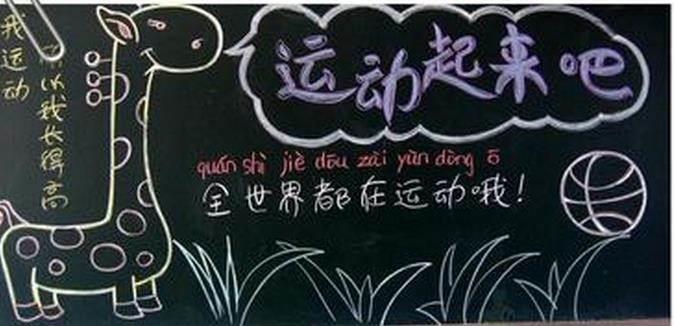 我运动
所以我长得高
运动起来吧
quán shì jiè dōu zài yùn dòng ō
全世界都在运动哦!